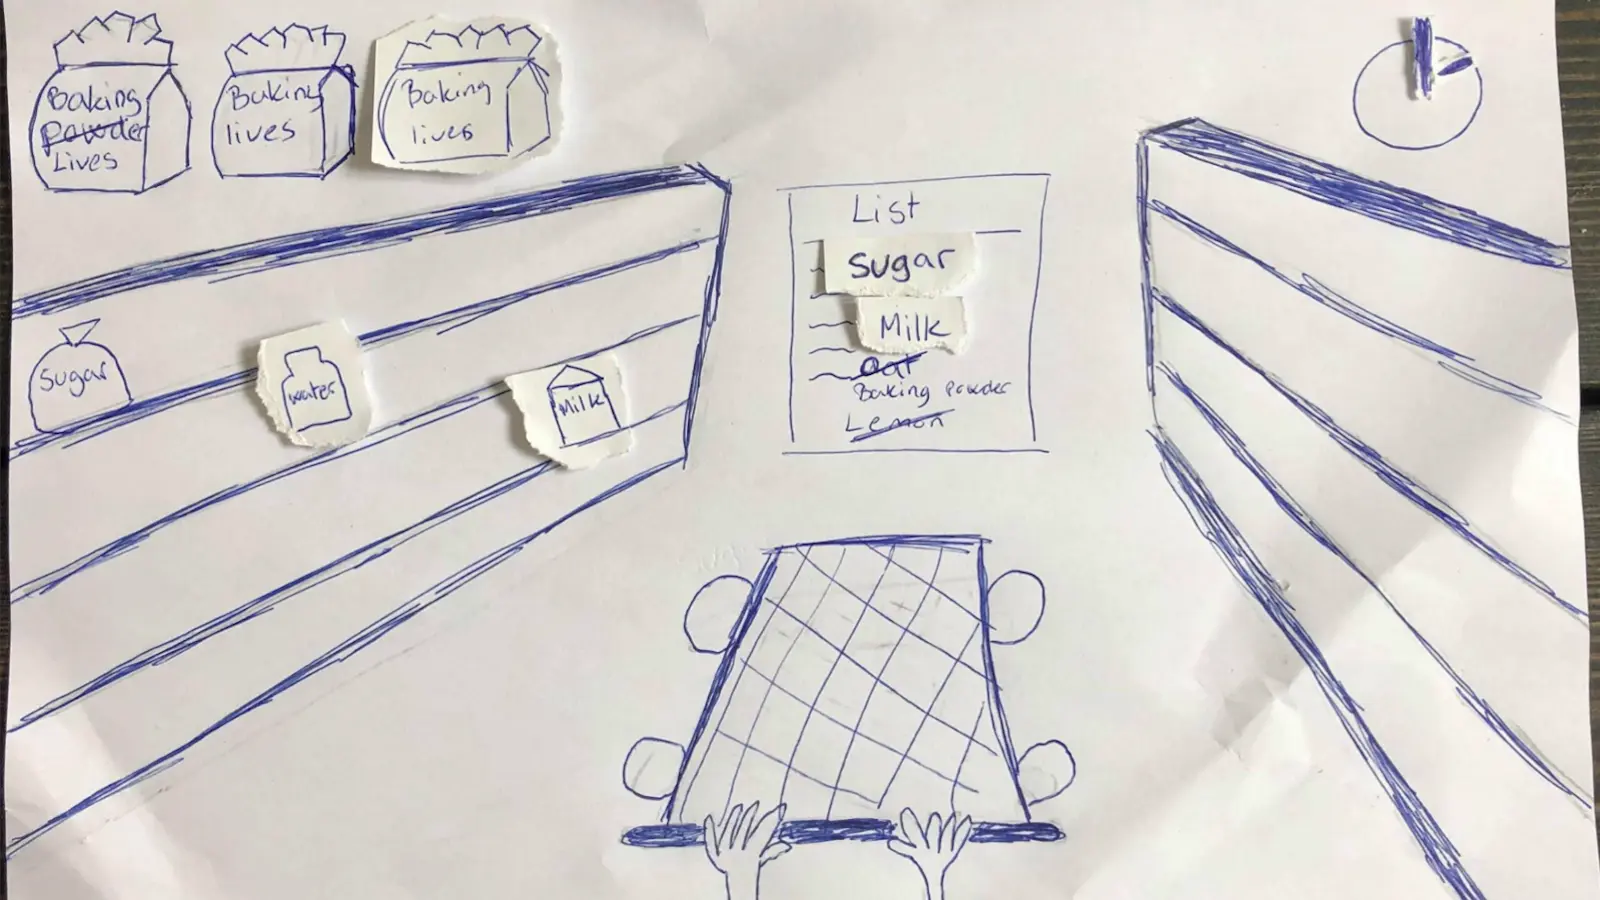 Baking
powder
Lives
Baking
lives
Baking
lives
List
Sugar
Milk
oat
Baking Powder
Lemon
Sugar
water
Milk